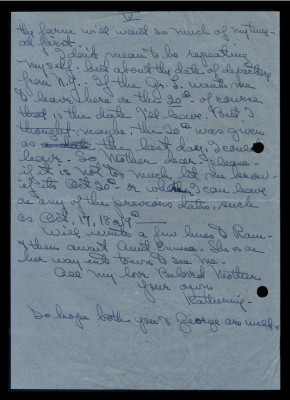 V
the farm will want so much of my time
at first.
I don't mean to be repeating
myself - but about the date of departing
from N.Y. If the Dr. L. wants me
to leave here on the 20th - of course
that is the date I'll leave. But I
thought maybe the 20th was given
as the last day I could
leave. So Mother dear please -
if it is not too much, let me know
if it's Oct 20th or whether I can leave
on any of the previous dates, such
as Oct. 17, 18 or 19th
Will write a few lines to Pam -
& then await Aunt Emma. She is on
her way into town to see me.
All my love Beloved Mother
Your own
Katherine -
Do hope both you & George are well.